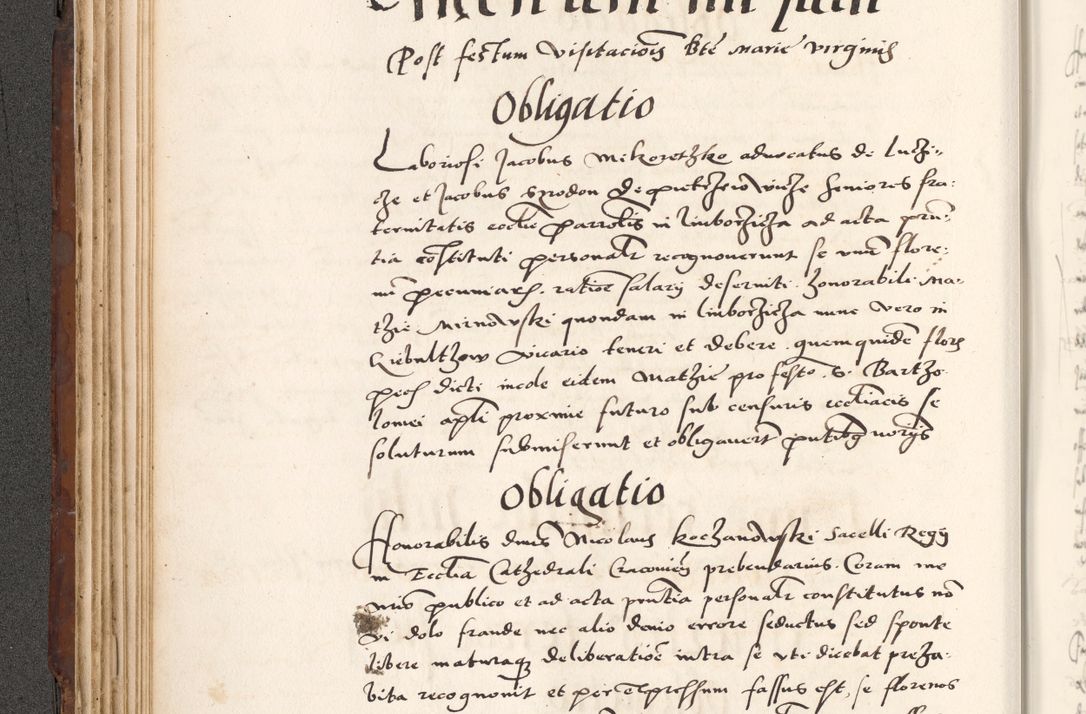 Post festum visitaciois bte Marie virginis
Obligatio
Laboriosi Jacobus Mikozetzko advocatus de Luczi„
cze et Jacobus de seniores fra:
ternitatis ecclie parrolis in limborzicza ad acta prn̄:
tia constituti personalr recognoverunt se unū flore:
nū pecuniares. ratioe salarij deserviti. honorabili Ma:
tzie Mirnowski quondam in limborzicza nunc vero in
vicario teneri et debere. quemquidē flore
dicti incole eidem Matzie pro festo. S. Bartzo:
lomei apli proxime futuro sub censuris eccliacis se
soluturum submiserunt et obligaverūt
Obligatio
Honorabilis dnus Nicolaus Koczanowski Sacelli Regij
in Ecclia Cathedrali Cracovien prebendarius. Coram me
nrio publico et ad acta prntia personalr constitutus nō
vi dolo fraude nec alio devio errore seductus sed sponte
libere maturaq; deliberatioe intra se uti dicebat preha:
bita recognovit et per expressum fassus est, se florenos